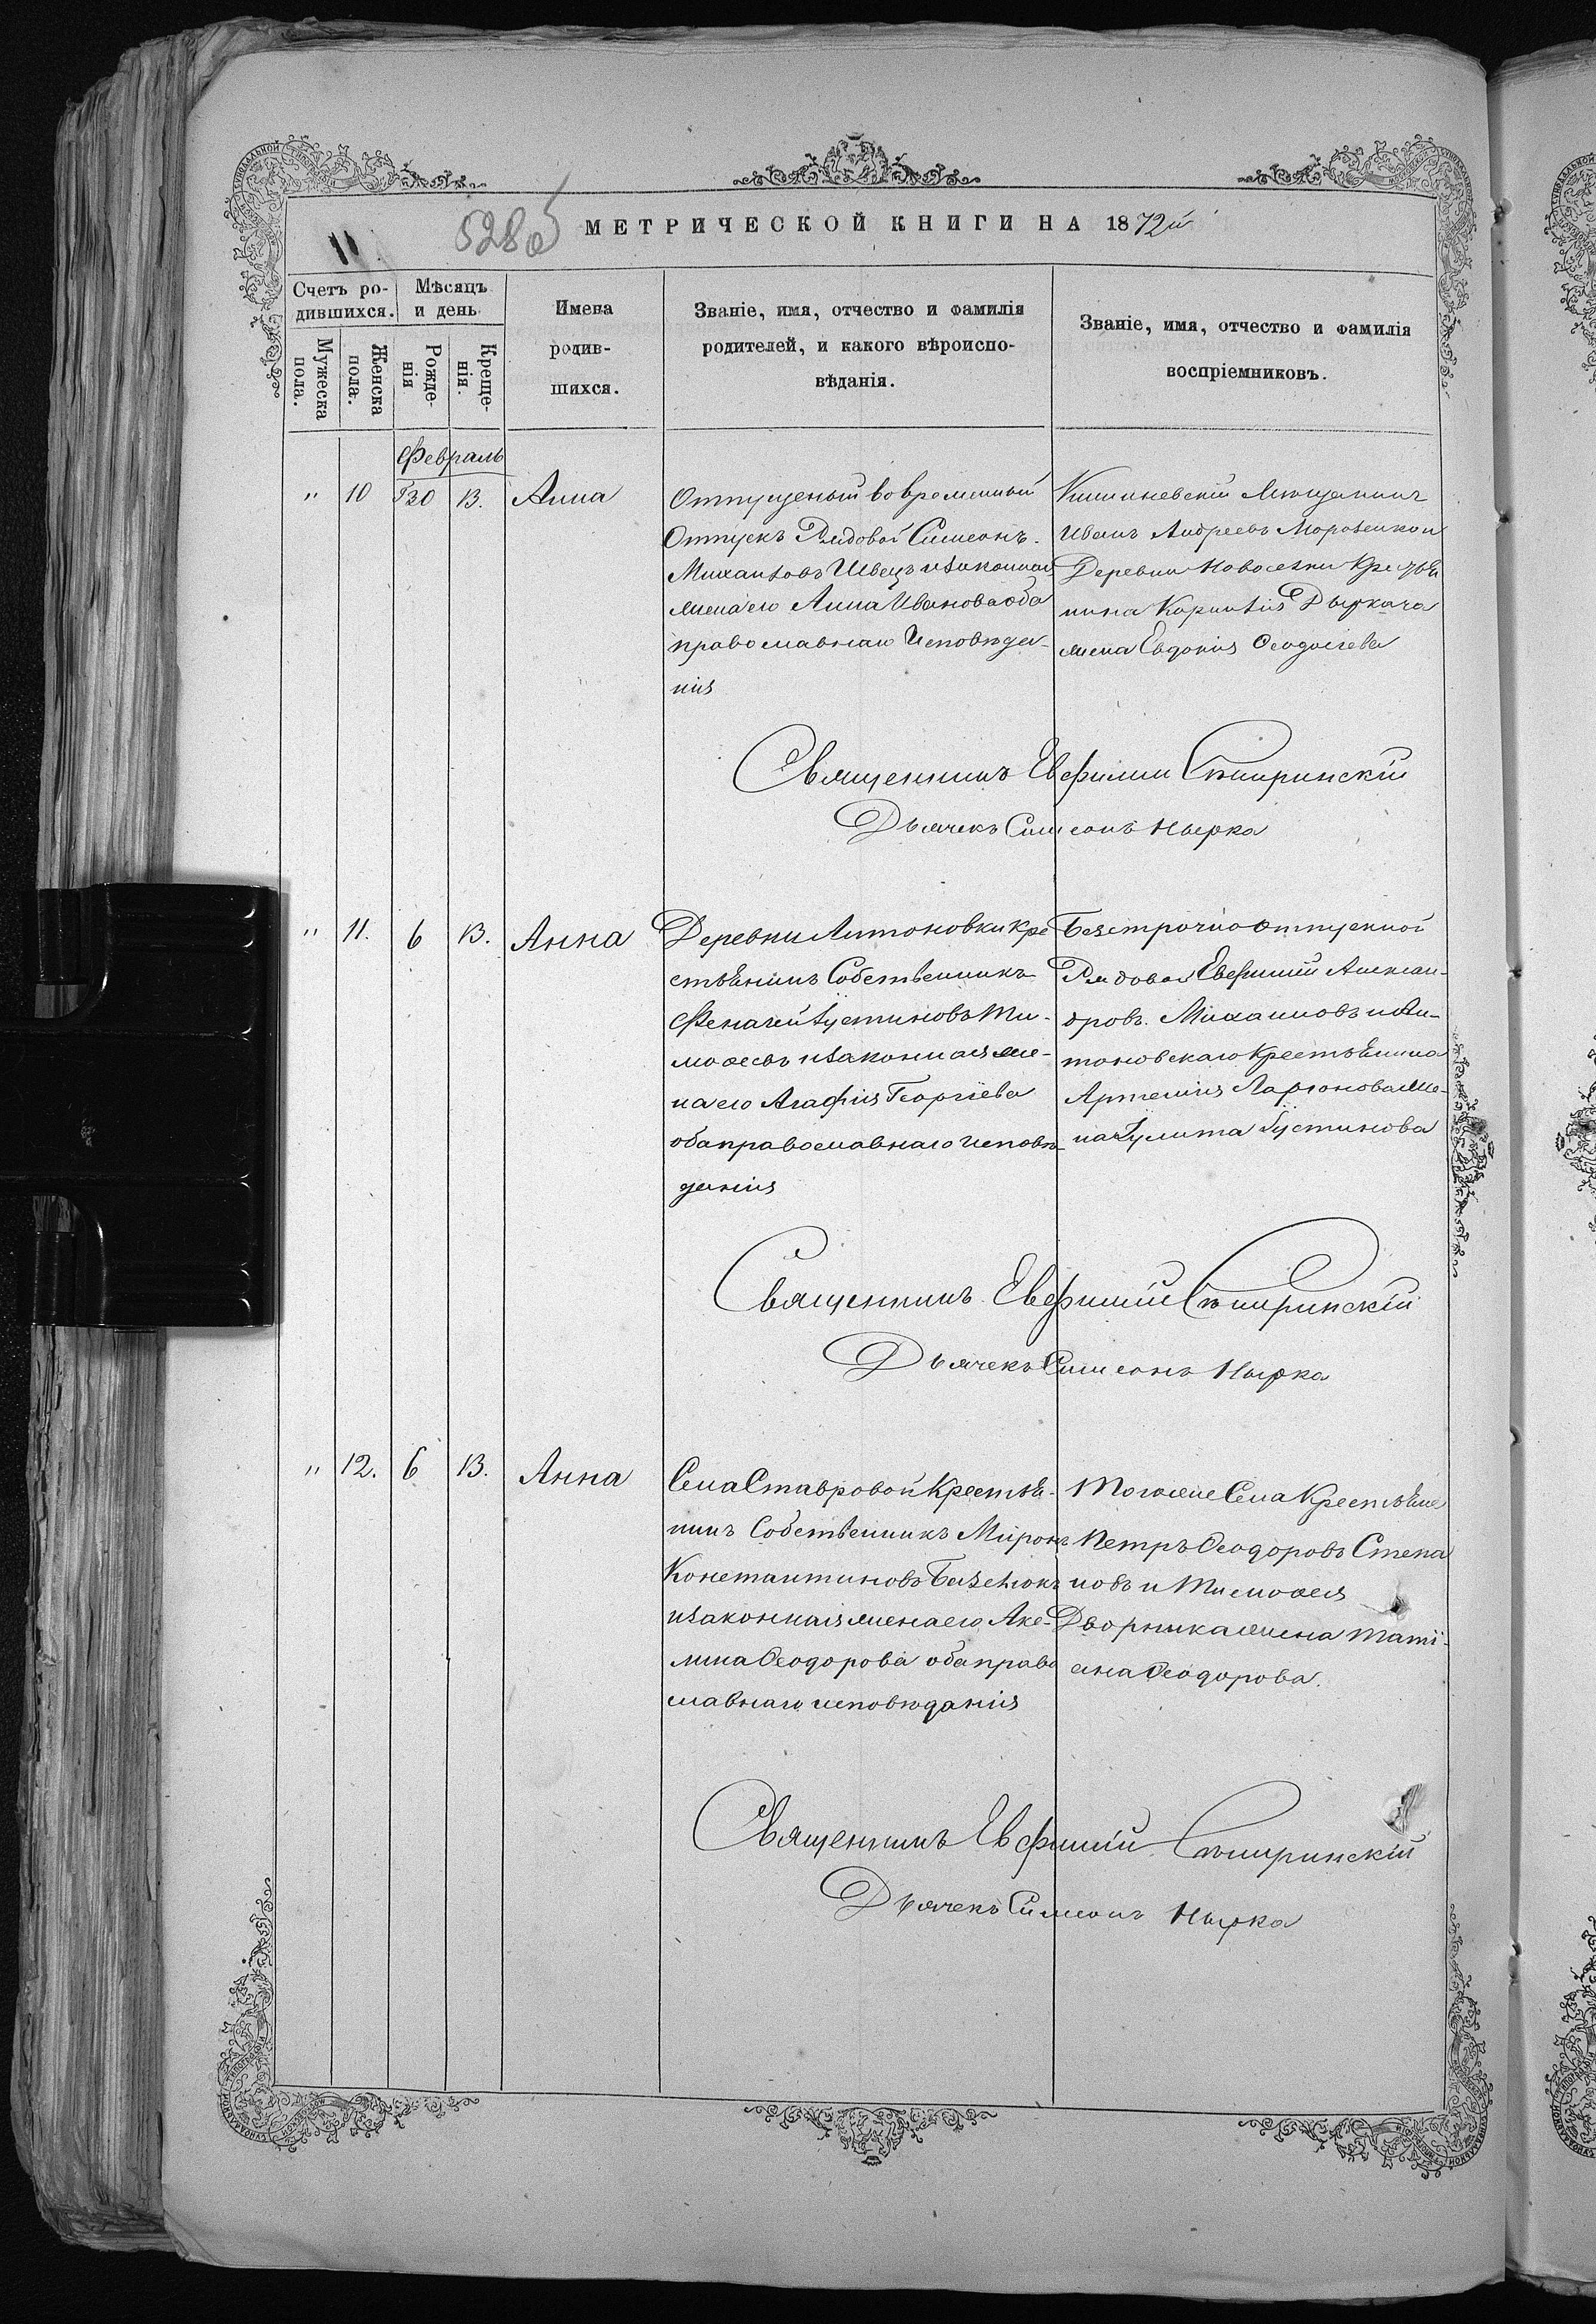 МЕТРИЧЕСКОЙ КНИГИ НА 1872й
11
528об
Счетъ ро-
дившихся.
Мѣсяцъ
и день
Имена
родив-
шихся.
Званіе, имя, отчество и фамилія
родителей, и какого вѣроиспо-
вѣданія.
Званіе, имя, отчество и фамилія
воспріемниковъ.
Мужеска
пола.
Женска
пола.
Рожде-
нія
Креще-
нія.
Февраль
" 10 30 13. Анна
Отпущеный во временный
Отпускъ Рядовой Симеонъ
Михаиловъ Швецъ и законная
жена его Анна Иванова оба
православнаго Исповѣда-
нія
Кишиневскій Мещанинъ
Иванъ Андреевъ Морозенко и
Деревни Новоселки Крестья
нина Корнилія Дыркача
жена Евдокія Ѳеодосіева
Священникъ Евфимій
Дьячекъ Симеонъ Нырка
" 11. 6 13. Анна
Деревни Антоновки Кре
стьянинъ Собственникъ
Іустиновъ Ти-
моѳеевъ и законная же-
на его Агафія Георгіева
оба православнаго исповѣ-
данія
Безсрочно отпускной
Рядовой Евфимій Алексан-
дровъ Михаиловъ и Ан-
тоновскаго Крестьянина
Артемія Ларіонова же-
на Іулита Іустинова
Священникъ Евфимій
Дьячекъ Симеонъ Нырка
" 12. 6 13. Анна
Села Ставровой Крестья-
нинъ Собственникъ Миронъ
Константиновъ
и законная жена его Аке-
лина Ѳеодорова оба право
славнаго исповѣданія
Тогоже Села Крестьяне
Петръ Ѳеодоровъ Степа
новъ и Тимоѳея
Дворника жена Таті-
ана Ѳеодорова.
Священникъ Евфимій
Дьячекъ Симеонъ Нырка